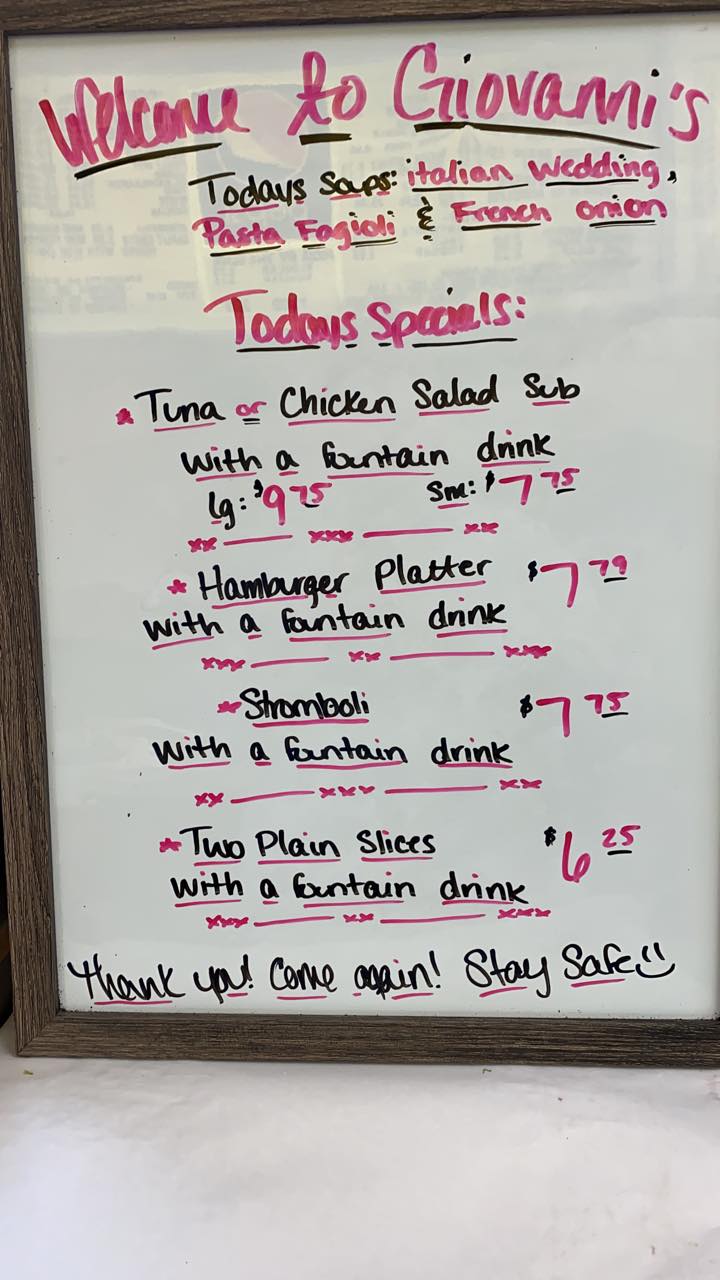 Welcome to Giovanni's
Todays Soups: italian wedding,
Pasta Fagioli & French onion
Todays Specials:
* Tuna or Chicken Salad Sub
with a fountain drink
lg: $9.75 Sm: $7.75
* Hamburger Platter $7.79
with a fountain drink
* Stromboli $7.75
with a fountain drink
* Two Plain Slices $6.25
with a fountain drink
Thank you! Come again! Stay Safe☺